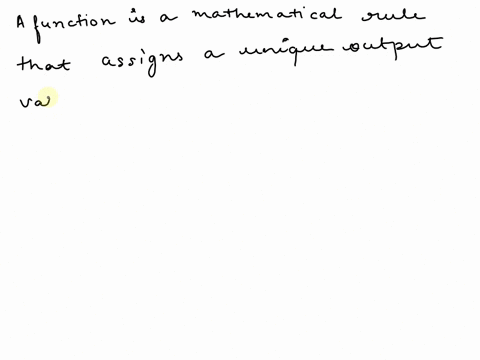 A function is a mathematical rule
that assigns a unique output
va